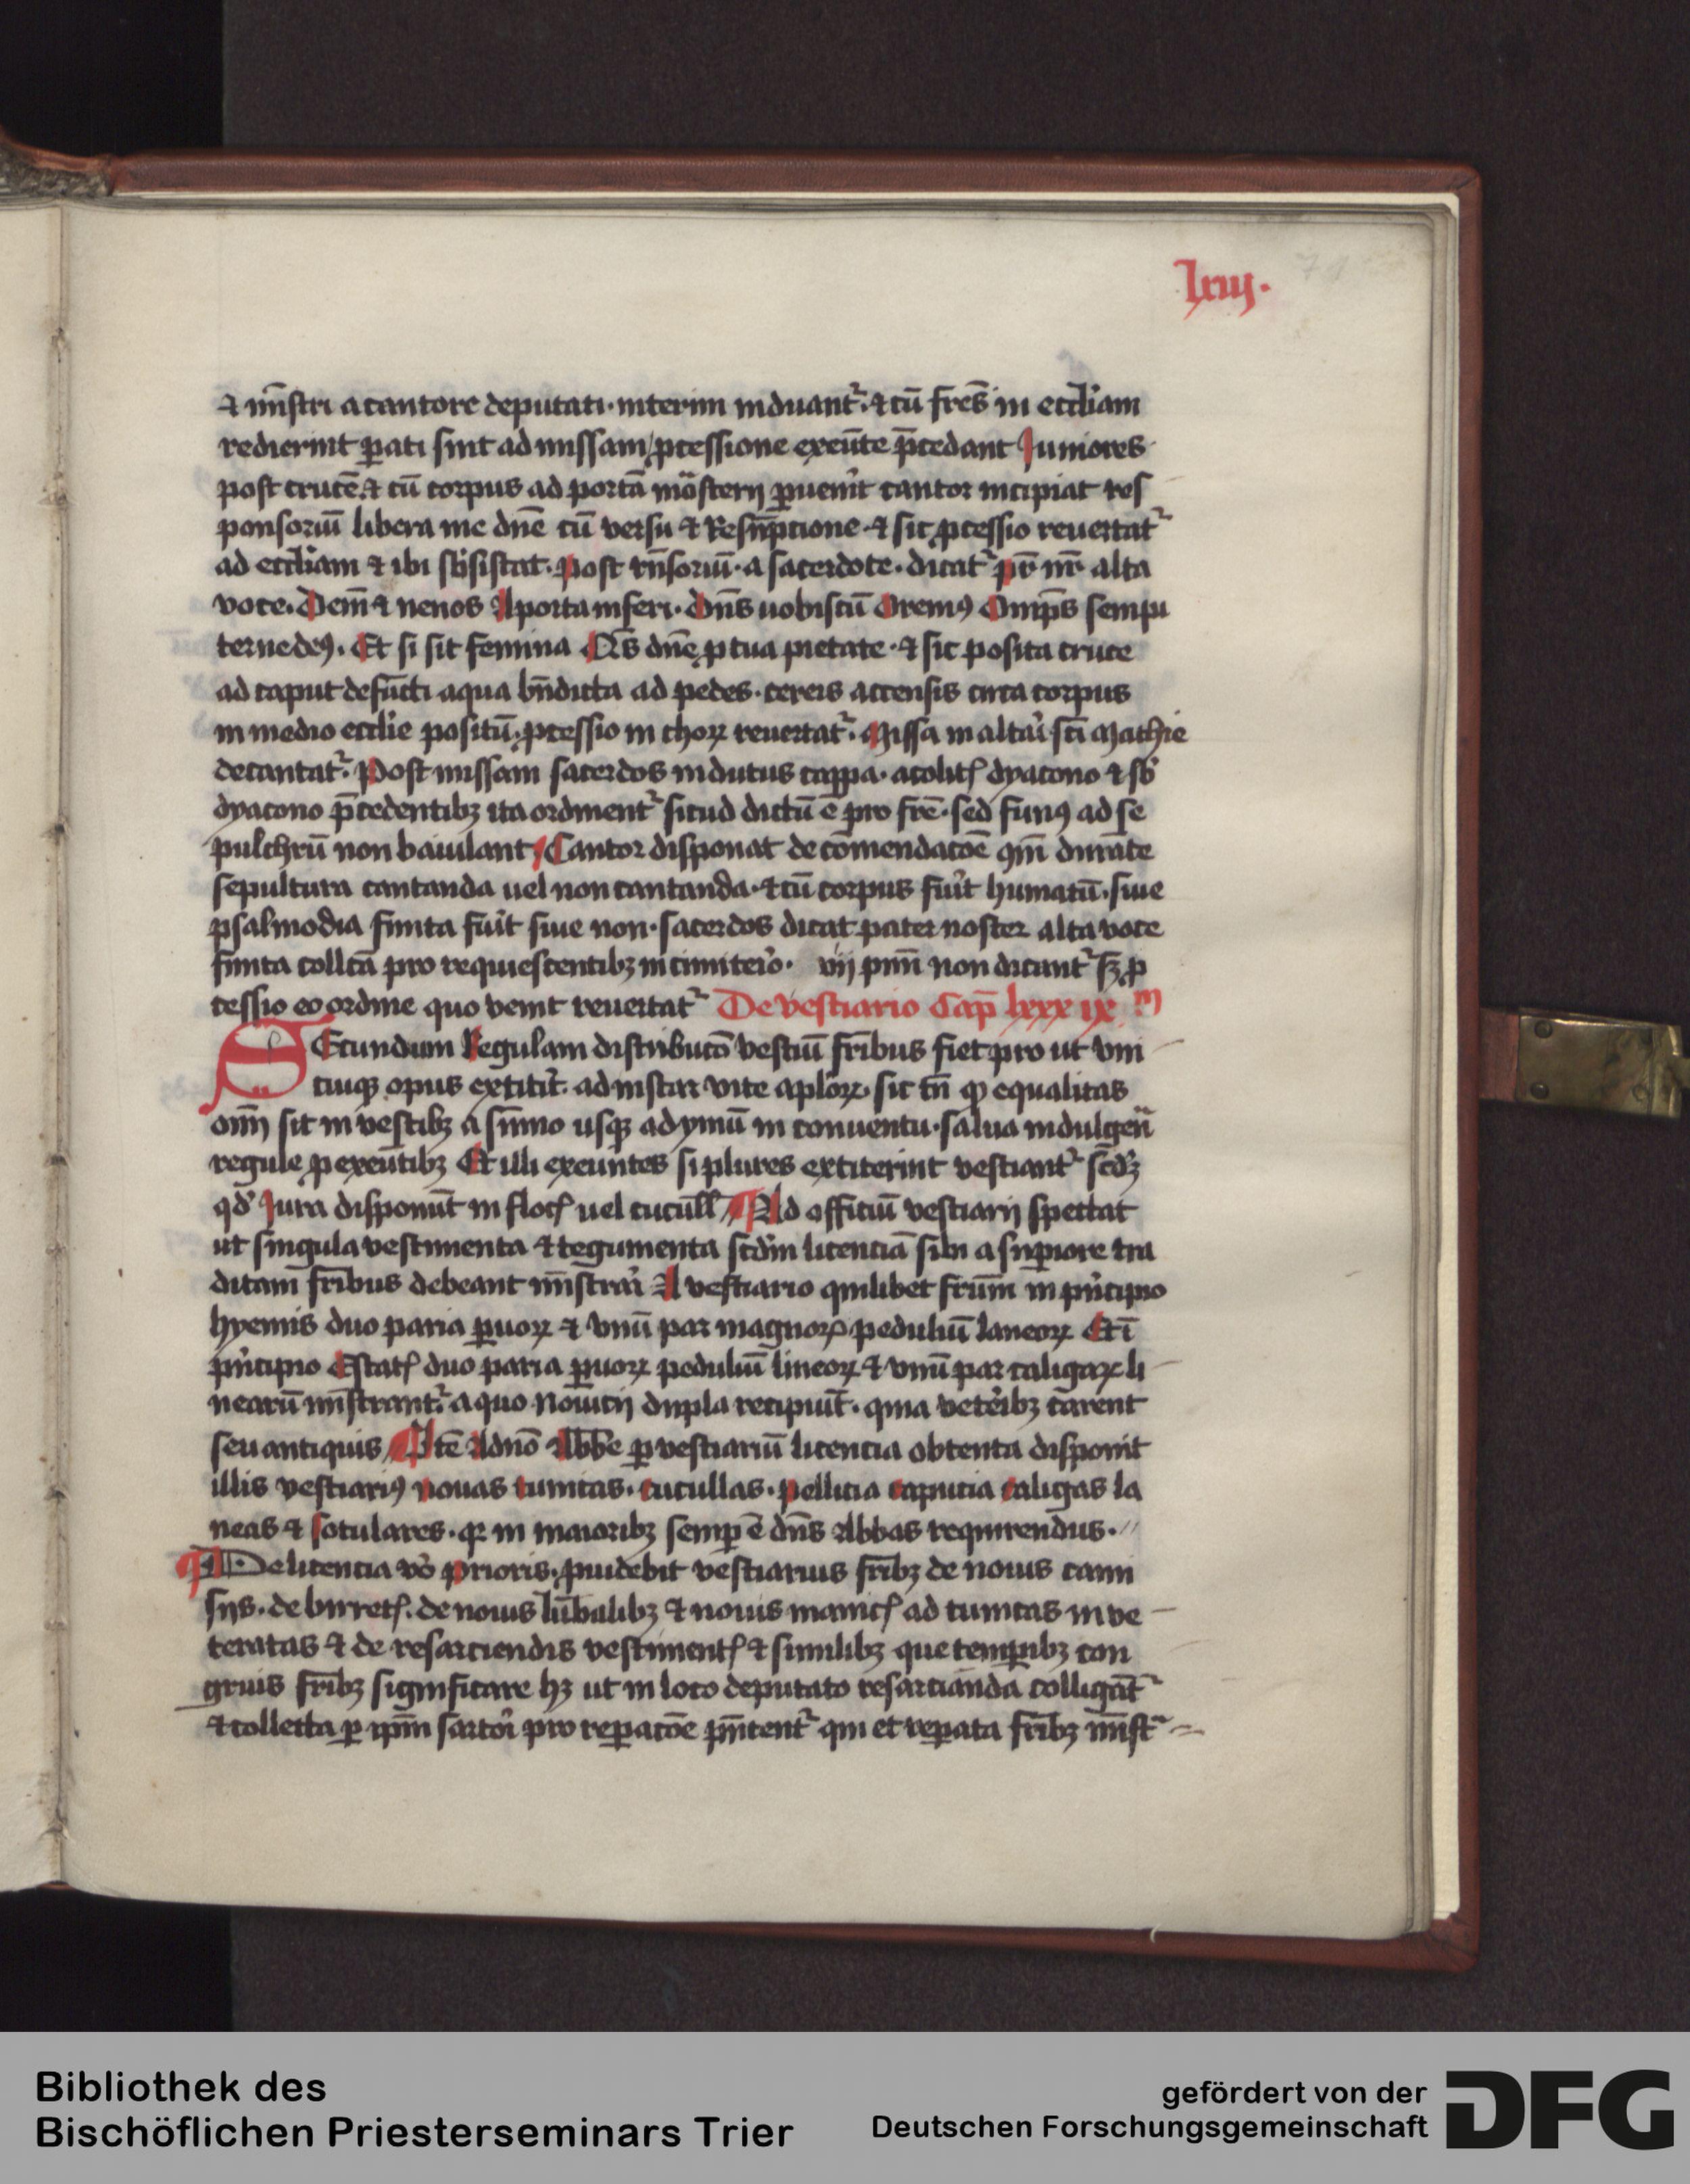 lxiij.
& mīstri a cantore deputati· interim induant᷑· & cū fres̄ in ecclīam
redierint ꝑati sint ad missam ꝓcessione exeūte p̄cedant Juniores
post crucē· & cū corpus ad portā mōasterij ꝑuenīt cantor incipiat res
ponsoriū libera me dn̄e cū versu & Resūpcione· & sic ꝓcessio reuertat᷑
ad ecclīam & ibi sb̄sistat· Post rn̄soriū· a sacerdote· dicat᷑ pr̄ nr̄ alta
voce· & nenos A porta inferi· Dn̄s uobiscū Oremꝰ Omp̄s sempi
terne deꝰ· Et si sit femina Qs̄ dn̄e ꝓ tua pietate· & sic posita cruce
ad caput defūcti aqua bn̄dicta ad pedes· cereis accensis circa corpus
in medio ecclīe positū· ꝓcessio in choꝝ reuertat᷑· Missa in altari scī Mathie
decantat᷑· Post missam sacerdos indutus cappa· acolitꝭ dyacono & sb̄
dyacono p̄cedentibꝫ ita ordinent᷑ sicud dictū ē pro frē· sed funꝰ ad se
pulchrū non baiulant Cantor disponat de cōmendacōe durāte
sepultura cantanda uel non cantanda· & cū corpus fuīt humatū· siue
psalmodia finita fuīt siue non· sacerdos dicat pater noster alta voce
finita collcā pro requiescentibꝫ in cimiterio· vij pnīn non dicant᷑ sꝫ ꝓ
cessio eo ordine quo venit reuertat᷑ De vestiario Cap̄ lxxxix m
SEcundum Regulam distribucō vestiū frībus fiet pro ut vni
cuiqꝫ opus extitīt· ad instar vite aplōꝝ· sic tn̄ ꝙ equalitas
oīm sit in vestibꝫ a sūmo usqꝫ ad ymū in conuentu· salua indulgen̄
regule ꝓ exeūtibꝫ Et illi exeuntes si plures extiterint vestiant᷑ scd̄ꝫ
qd̄ Jura disponūt in flocꝭ uel cucull̄ Ad officiū vestiarij spectat
ut singula vestimenta & tegumenta scdm̄ licenciā sibi a supiore tra
ditam frībus debeant mīstrari A vestiario quilibet frūm in pͥncipio
hyemis duo paria ꝑuoꝝ & vnū par magnoꝝ peduliū laneoꝝ Et ī
pͥncipio Estatꝭ duo paria ꝑuoꝝ peduliū lineoꝝ & vnū par caligaꝝ li
nearū mīstrant᷑· a quo nouicij dupla recipiūt· quia veteribꝫ carent
seu antiquis Itē Adnō Abbē ꝑ vestiariū licencia obtenta disponit
illis vestiariꝰ nouas tunicas· cucullas· pellicia capucia caligas la
neas & sotulares· qꝛ in maioribꝫ semꝑ ē dn̄s Abbas requirendus·
De licencia vō prioris· ꝓuidebit vestiarius frībꝫ de nouis cami
sijs· de birretꝭ· de nouis lūbalibꝫ & nouis manicꝭ ad tunicas inve
teratas & de resarciendis vestimentꝭ & similibꝫ que temꝑibꝫ con
gruis frībꝫ significare hꝫ ut in loco deputato resarcianda colligāt᷑
& collecta ꝑ ip̄m sartori pro reꝑacōe qui et reꝑata frībꝫ mīst᷑
Bibliothek des
Bischöflichen Priesterseminars Trier
gefördert von der
Deutschen Forschungsgemeinschaft
DFG